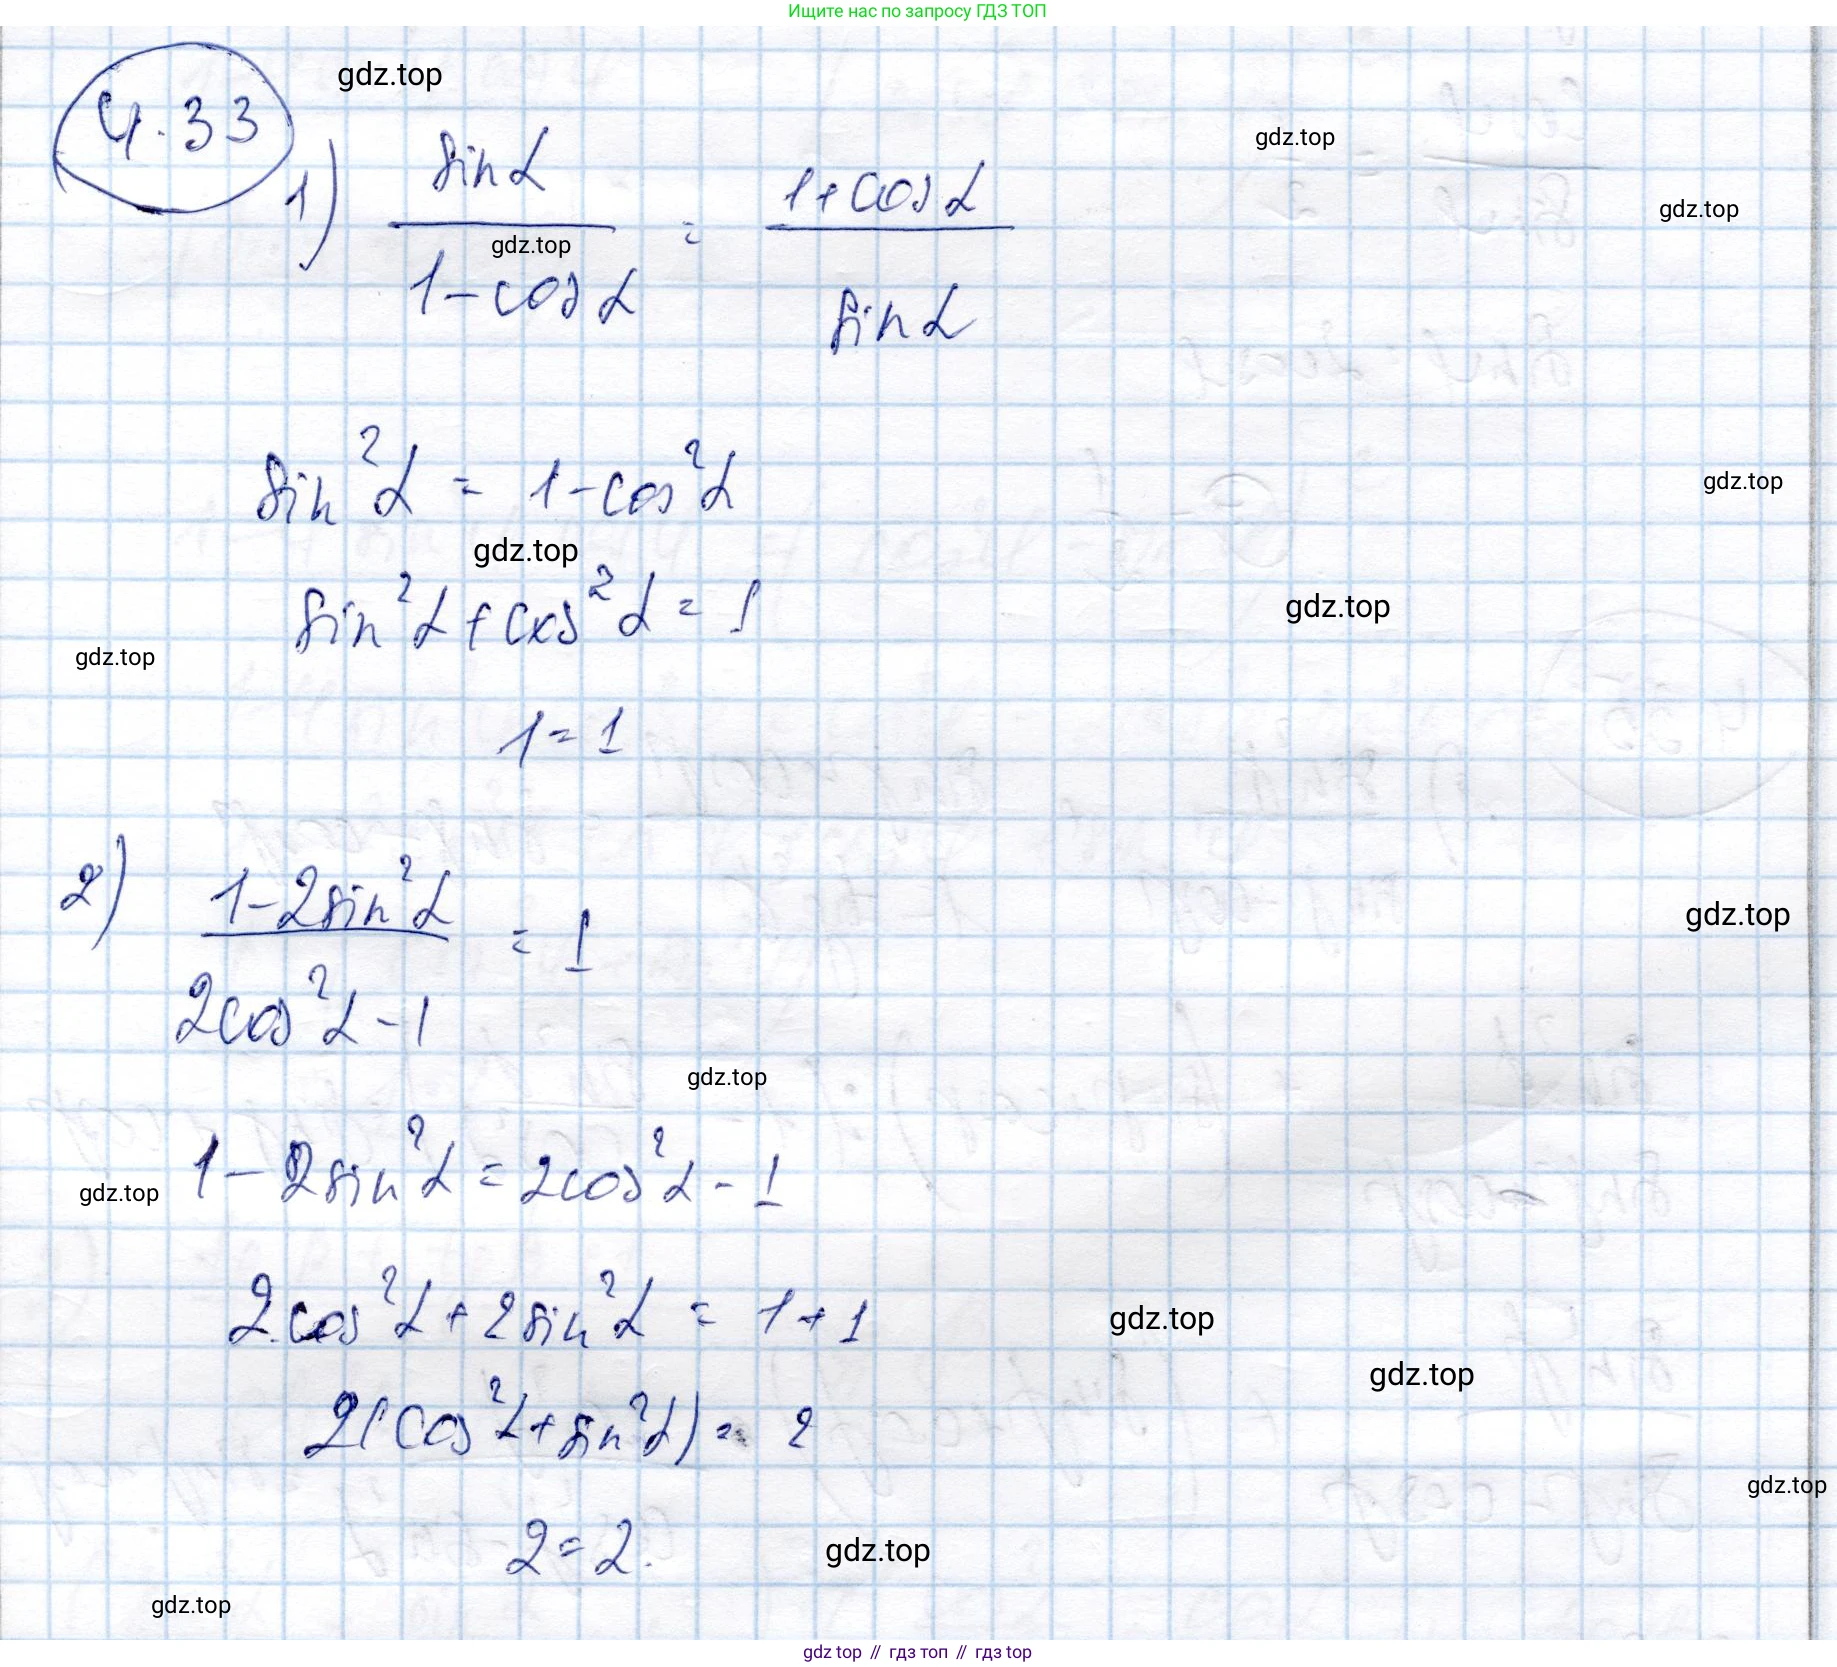 Ищите нас по запросу ГДЗ ТОП
4.33
gdz.top
gdz.top
gdz.top
1) sinα / 1-cosα = 1+cosα / sinα
gdz.top
sin²α = 1-cos²α
gdz.top
gdz.top
sin²α + cos²α = 1
gdz.top
gdz.top
1 = 1
2) 1-2sin²α / 2cos²α-1 = 1
gdz.top
gdz.top
1-2sin²α = 2cos²α-1
gdz.top
2cos²α + 2sin²α = 1+1
gdz.top
gdz.top
2(cos²α + sin²α) = 2
gdz.top
2 = 2.
gdz.top
gdz.top
gdz top // гдз топ // гдз top